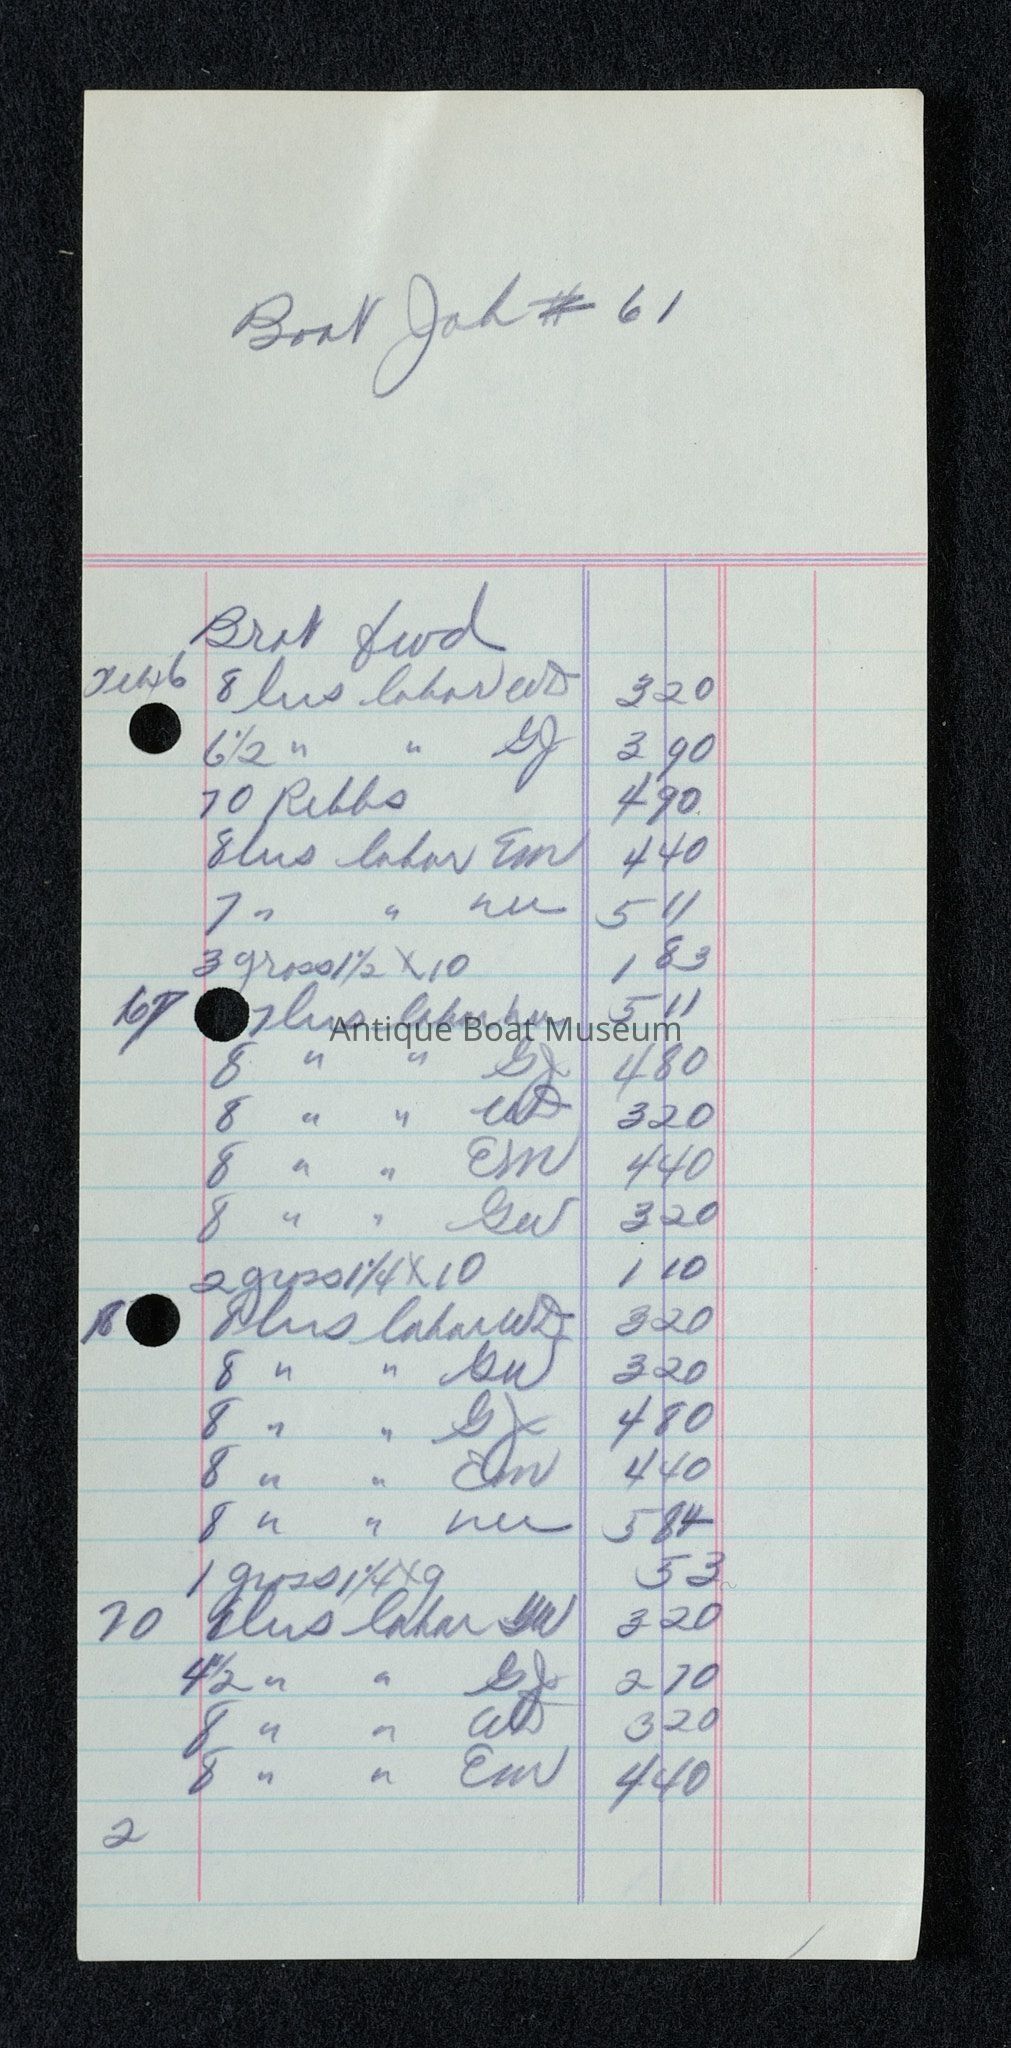 Boat Job # 61
Brot fwd
Feb 16 8 hrs labor WD 3 20
6 1/2 " " GJ 3 90
70 Ribbs 4 90
8 hrs labor EM 4 40
7 " " 5 11
3 gross 1 1/2 X 10 1 83
17 7 hrs labor 5 11
Antique Boat Museum
8 " " GJ 4 80
8 " " WD 3 20
8 " " EM 4 40
8 " " GW 3 20
2 gross 1 1/4 X 10 1 10
18 8 hrs labor WD 3 20
8 " " GW 3 20
8 " " GJ 4 80
8 " " EM 4 40
8 " " 5 84
1 gross 1 1/4 X 9 53
20 8 hrs labor GW 3 20
4 1/2 " " GJ 2 70
8 " " WD 3 20
8 " " EM 4 40
2